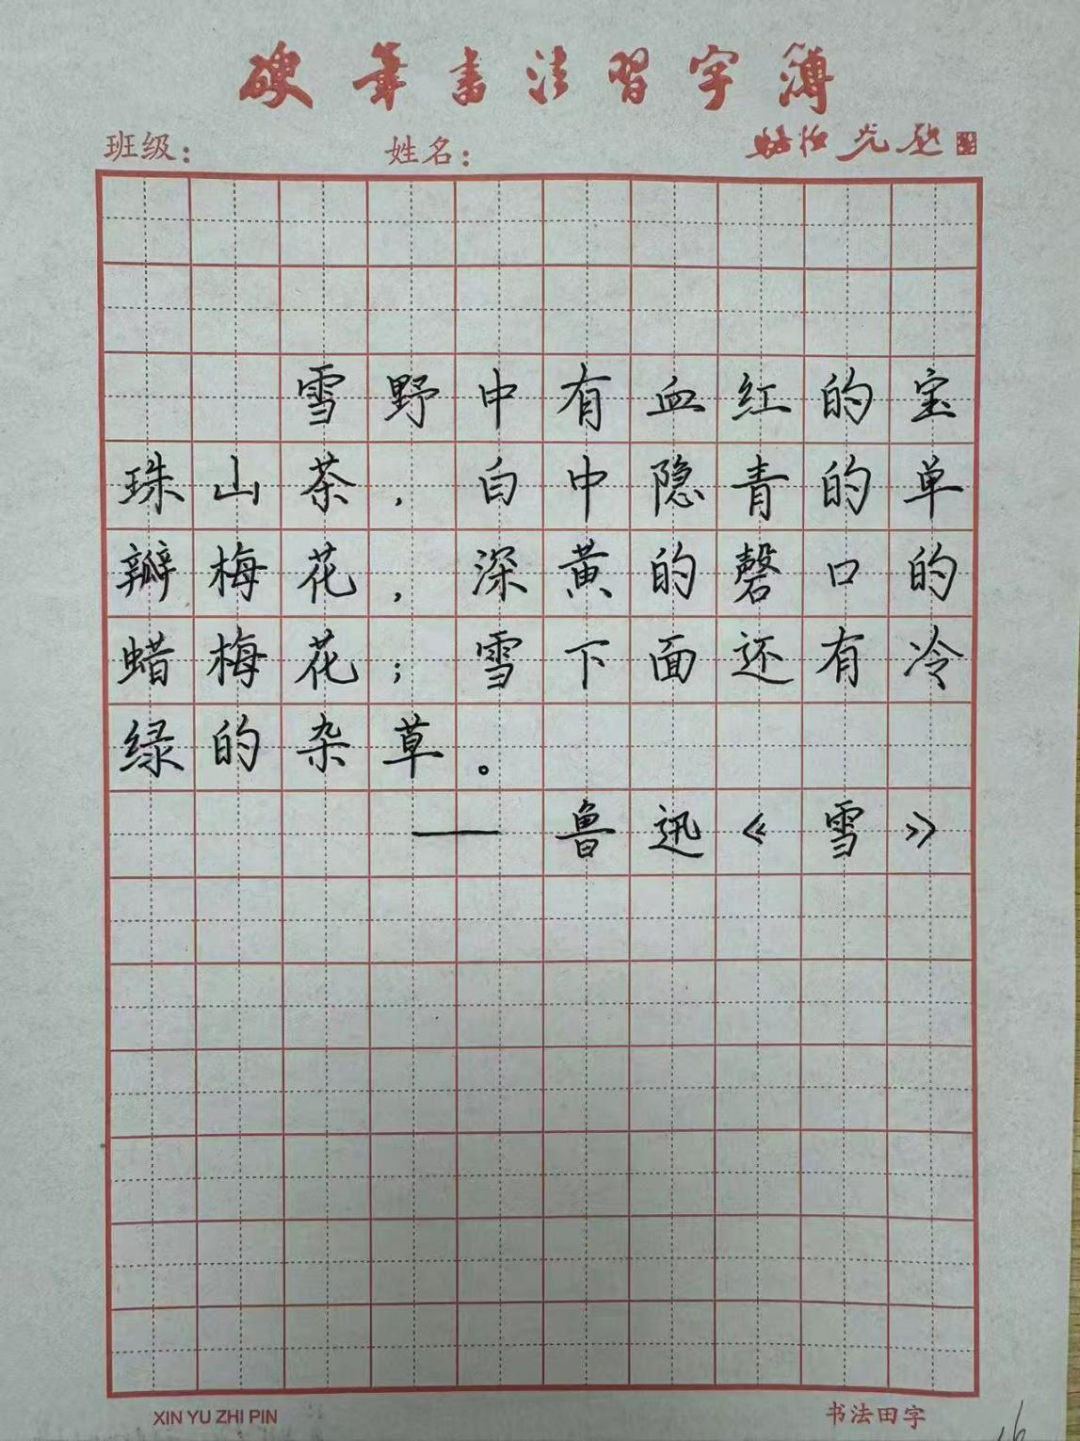 硬笔书法習字簿
班级： 姓名：
雪野中有血红的宝
珠山茶，白中隐青的单
瓣梅花，深黄的磬口的
蜡梅花；雪下面还有冷
绿的杂草。
——鲁迅《雪》
XIN YU ZHI PIN 书法田字